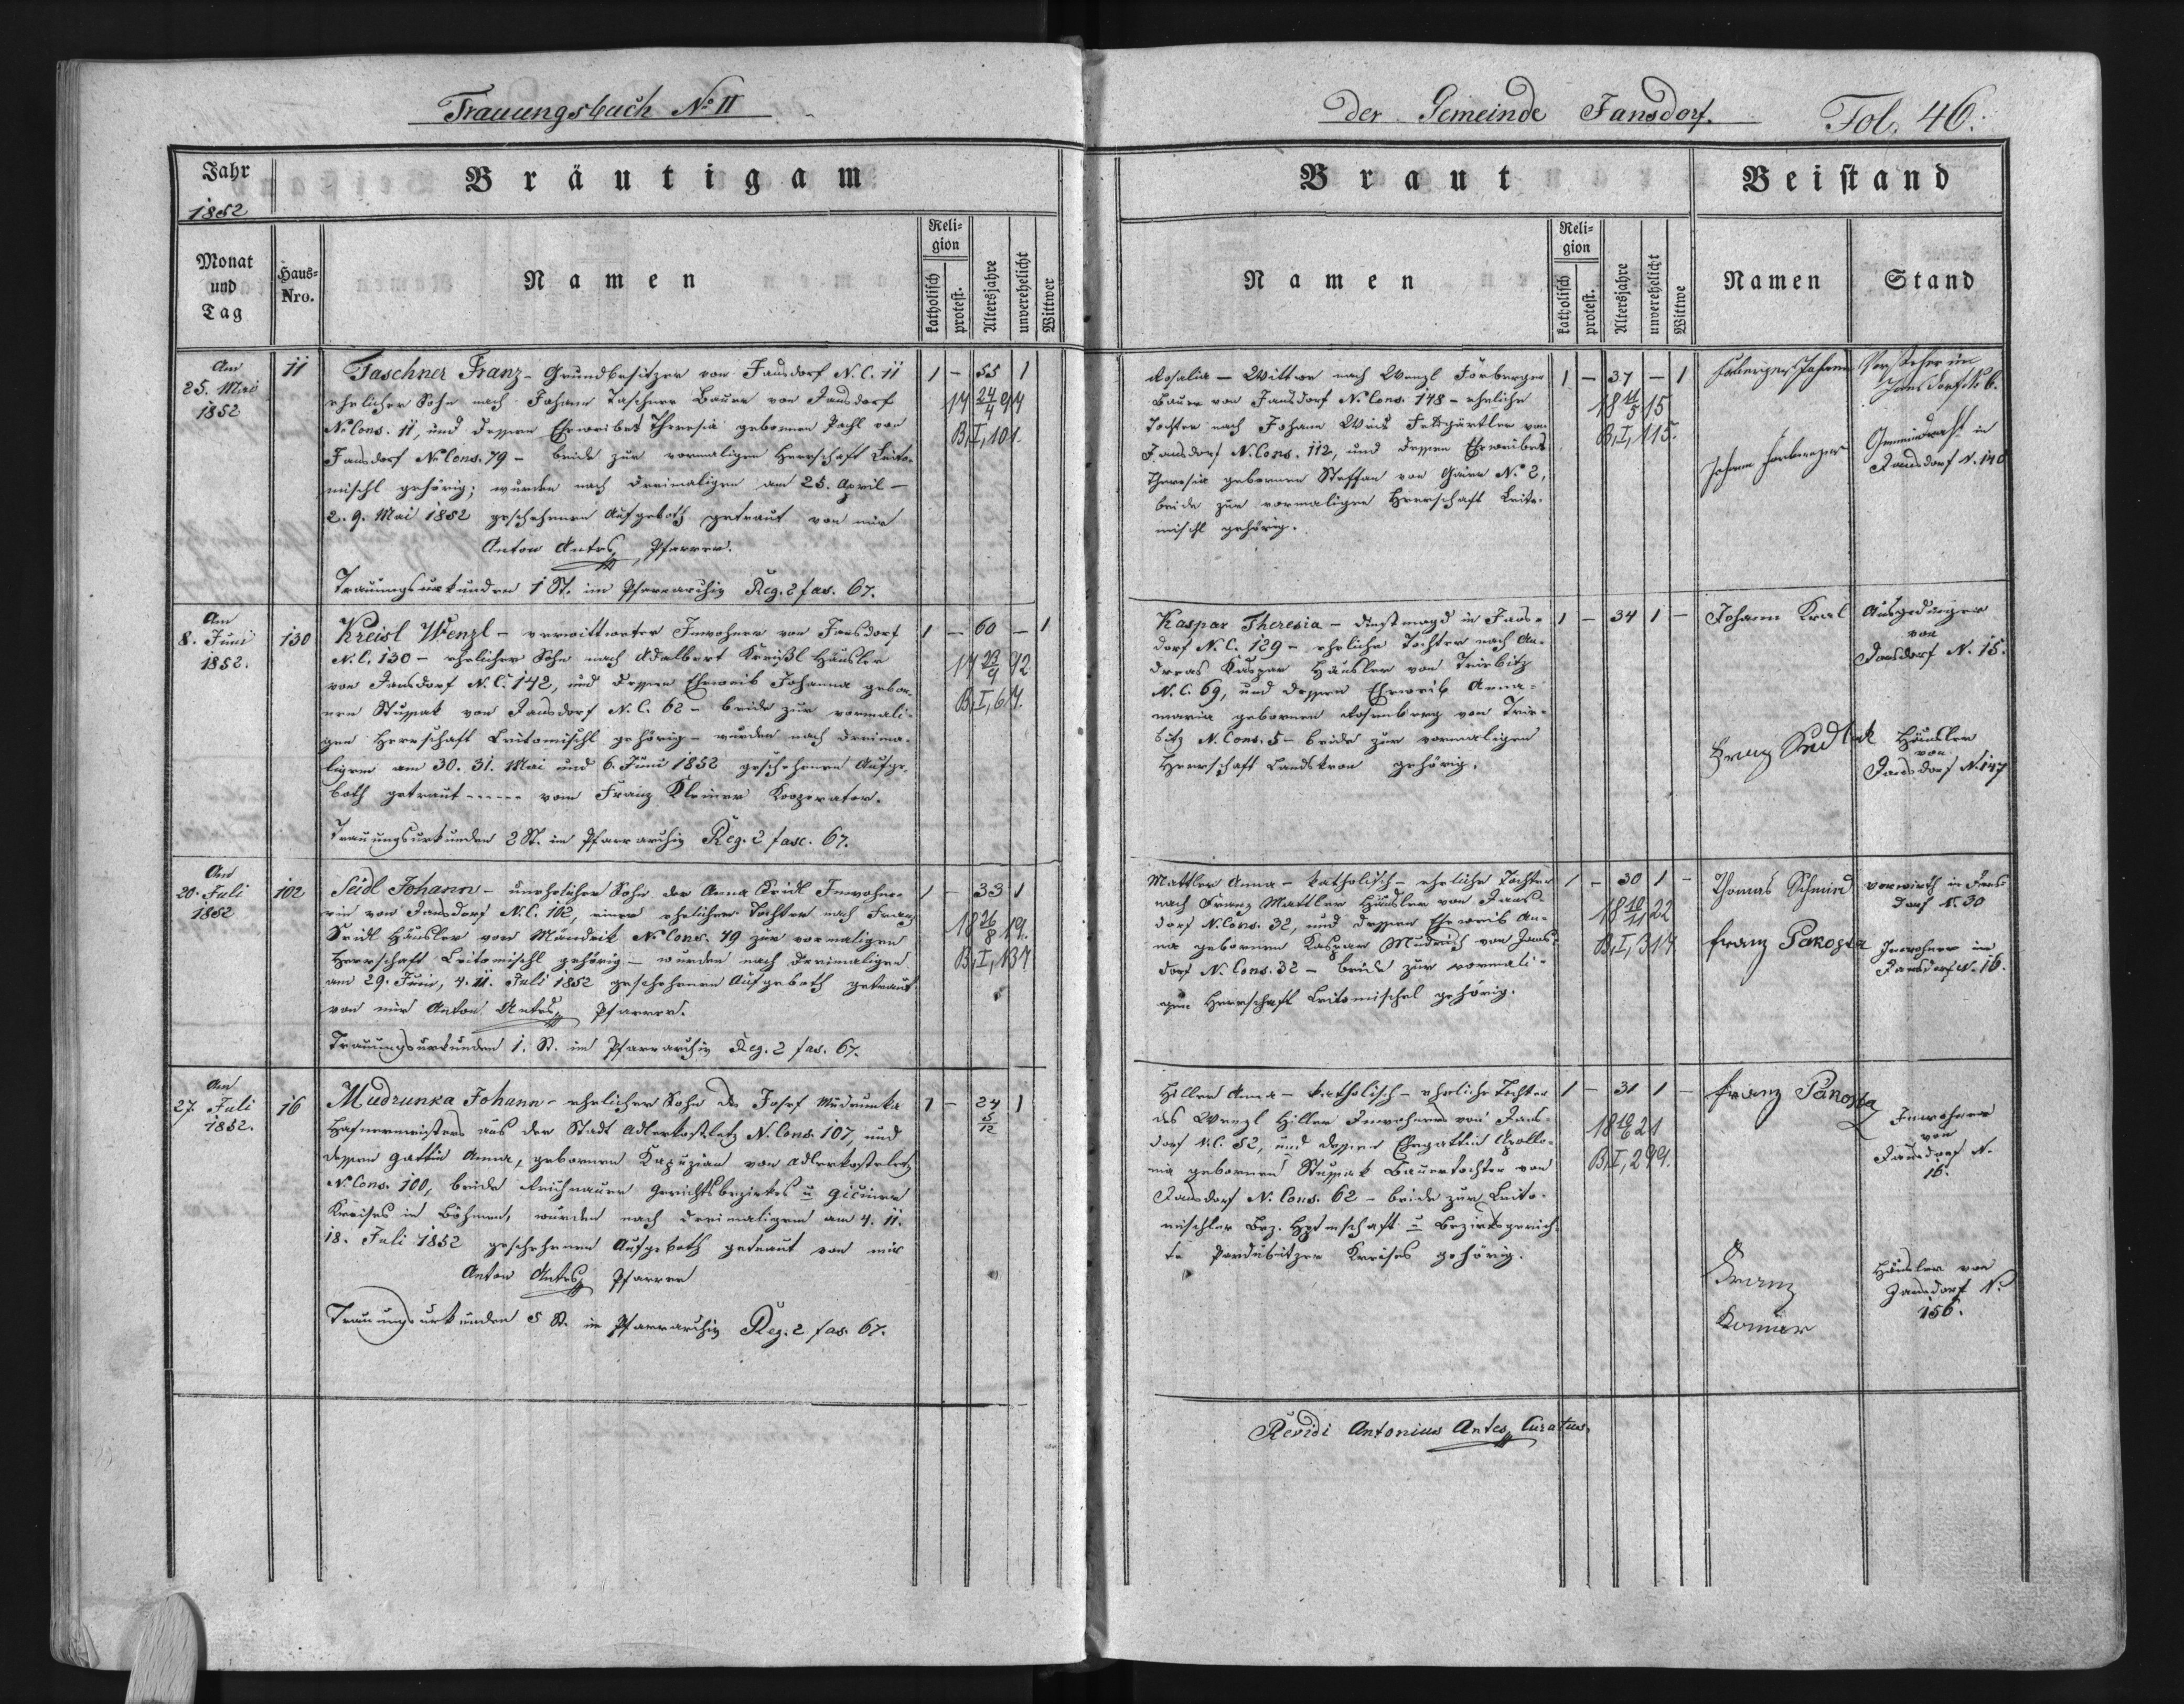 Trauungsbuch No. II
der Gemeinde Jansdorf.
Fol. 46.
Jahr
1852
Bräutigam
Monat
und
Tag
Haus-
Nro.
Namen
Reli-
gion
katholisch
protest.
Altersjahre
unverehelicht
Wittwer
Braut
Beistand
Namen
Reli-
gion
katholisch
protest.
Altersjahre
unverehelicht
Wittwe
Namen
Stand
Am
25. Mai
1852
11
Taschner Franz - Grundbesitzer von Jansdorf N. C. 11
ehelicher Sohn nach Johann Taschner Bauer von Jansdorf
N. Cons. 11, und dessen Eheweibes Theresia gebornen Pachl von
Jansdorf N. Cons. 79 - beide zur vormaligen Herrschaft Leito-
mischl gehörig; wurden nach dreimaligen am 25. April -
2. 9. Mai 1852 geschehenen Aufgeboth getraut von mir
Anton Antes, Pfarrer.
Trauungsurkunden 1 St. im Pfarrarchiv Reg. 2 fas. 67.
1 - 55 1
17 24/4 97
B, I, 101.
Rosalia - Wittwe nach Wenzl Förberger
Bauer von Jansdorf N. Cons. 148 - eheliche
Tochter nach Johann Weis Feldgärtler von
Jansdorf N. Cons. 112, und dessen Eheweibes
Theresia gebornen Steffan von Gaier N. 2,
beide zur vormaligen Herrschaft Leito-
mischl gehörig.
1 - 37 - 1
18 11/5 15
B, I, 115.
Vorsteher in
Jansdorf No 6.
Johann Förberger
Gemeinderath in
Jansdorf N. 148
Am
8. Juni
1852.
130
Kreisl Wenzl - verwittweter Inwohner von Jansdorf
N. C. 130 - ehelicher Sohn nach Adalbert Kreißl Häusler
von Jansdorf N. C. 142, und dessen Eheweib Johanna gebor-
nen Stussak von Jansdorf N. C. 62 - beide zur vormali-
gen Herrschaft Leitomischl gehörig - wurden nach dreima-
ligen am 30. 31. Mai und 6. Juni 1852 geschehenen Aufge-
both getraut ------ vom Franz Kleiner Kooperator.
Trauungsurkunden 2 St. im Pfarrarchiv Reg. 2 fasc. 67.
1 - 60 - 1
17 23/9 92
B, I, 67.
Kaspar Theresia - Dienstmagd in Jans-
dorf N. C. 129 - eheliche Tochter nach An-
dreas Kaspar Häusler von Triebitz
N. C. 69, und dessen Eheweib Anna-
maria gebornen Rosenberg von Trie-
bitz N. Cons. 5 - beide zur vormaligen
Herrschaft Landskron gehörig.
1 - 34 1 -
Johann Kral
Ausgedinger
von
Jansdorf N. 15.
Franz Sedlak
Häusler
von
Jansdorf N. 147
Am
20. Juli
1852
102
Seidl Johann - unehelicher Sohn der Anna Seidl Inwohne-
rin von Jansdorf N. C. 102, einer ehelichen Tochter nach Franz
Seidl Häusler von Mändrik N. Cons. 49 zur vormaligen
Herrschaft Leitomischl gehörig - wurden nach dreimaligen
am 29. Juni, 4. 11. Juli 1852 geschehenen Aufgeboth getraut
von mir Anton Antes, Pfarrer.
Trauungsurkunden 1. St. im Pfarrarchiv Reg. 2 fas. 67.
1 - 33 1
18 26/8 19.
B, I, 137
Mattler Anna - katholisch - eheliche Tochter
nach Franz Mattler Häusler von Jans-
dorf N. Cons. 32, und dessen Eheweib An-
na gebornen Kaspar Mudrich von Jans-
dorf N. Cons. 32 - beide zur vormali-
gen Herrschaft Leitomischel gehörig.
1 - 30 1 -
18 12/11 22
B, I, 317
Thomas Schmied
Vorwirth in Jans-
dorf N. 30
Franz
Inwohner in
Jansdorf N. 16.
Am
27. Juli
1852.
16
Mudrunka Johann - ehelicher Sohn des Josef Mudrunka
Hafnermeisters aus der Stadt Adlerkosteletz N. Cons. 107, und
dessen Gattin Anna, gebornen Kapuzian von Adlerkosteletz
N. Cons. 100, beide Reichnauer Gerichtsbezirkes u Gičiner
Kreises in Böhmen, wurden nach dreimaligem am 4. 11.
18. Juli 1852 geschehenen Aufgeboth getraut von mir
Anton Antes, Pfarrer
Trauungsurkunden 5 St. im Pfarrarchiv Reg. 2 fas. 67.
1 - 24 5/12 1
Hiller Anna - katholisch - eheliche Tochter
des Wenzl Hiller Inwohners von Jans-
dorf N. C. 52, und dessen Ehegattin Apollo-
nia gebornen Stussak Bauerstochter von
Jansdorf N. Cons. 62 - beide zur Leito-
mischler Bez. Hptmschaft u Bezirksgerich-
te Pardubitzer Kreises gehörig.
1 - 31 1 -
B, I, 299.
Franz
Inwohner
von
Jansdorf N.
16.
Franz
Häusler von
Jansdorf N.
156.
Revidi Antonius Antes, Curatus.